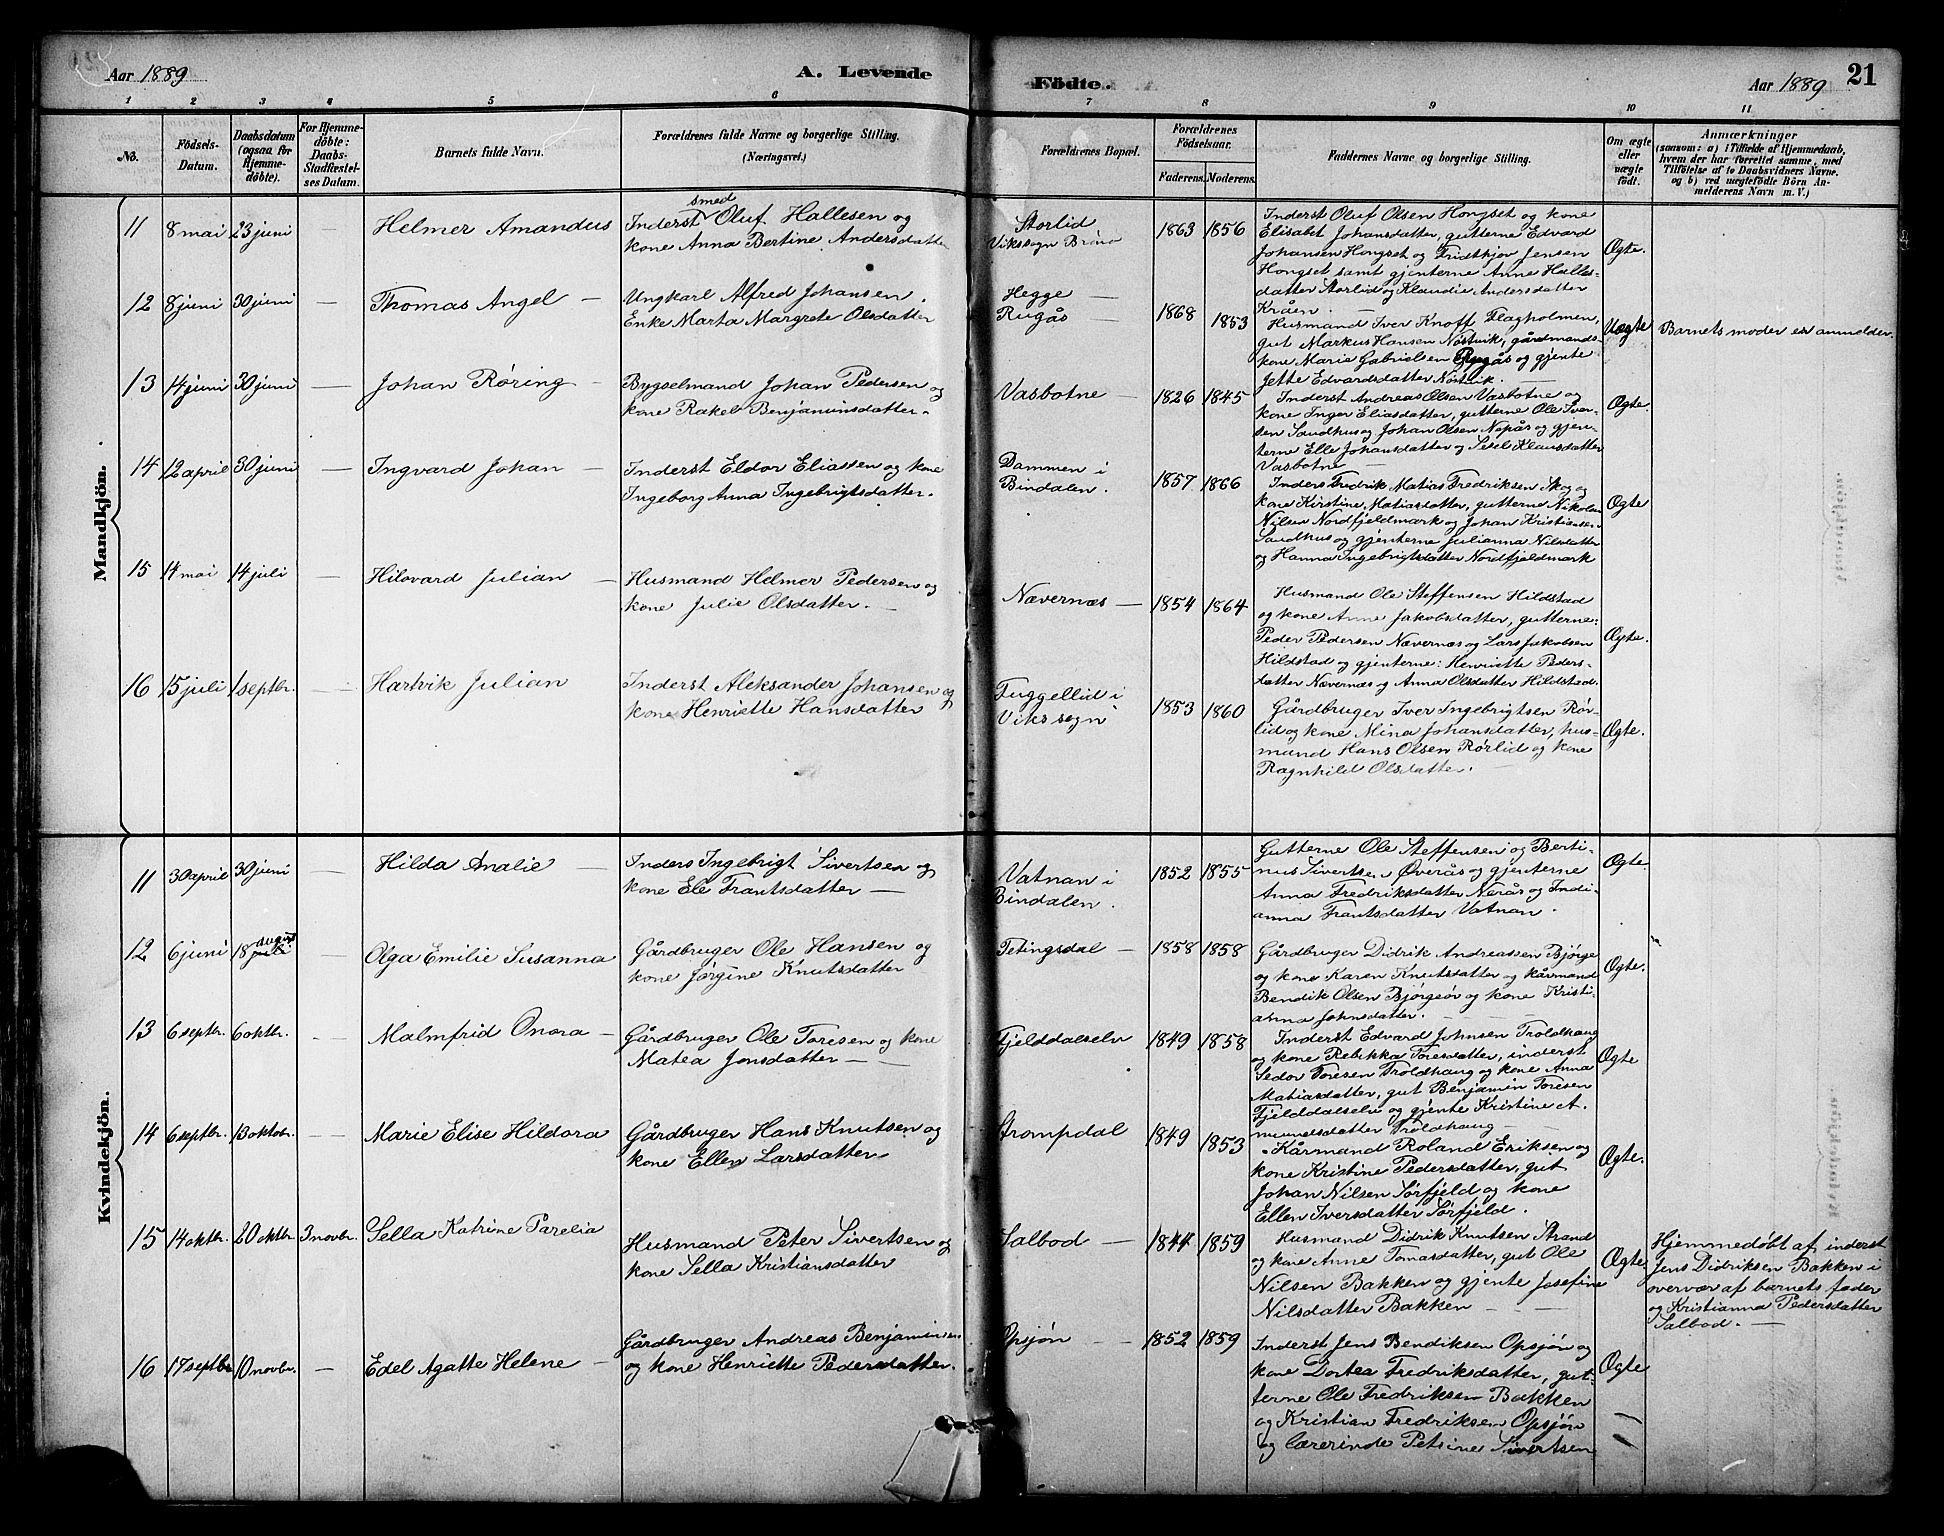 Aar 1889
A. Levende
Födte.
Aar 1889
21
1 2 3 4 5 6 7 8 9 10 11
No.
Födsels-Datum.
Daabsdatum (ogsaa for Hjemmedöbte).
For Hjemmedöbte: Daabs-Stadfæstelses Datum.
Barnets fulde Navn.
Forældrenes fulde Navne og borgerlige Stilling. (Næringsvei.)
Forældrenes Bopæl.
Forældrenes Födselsaar.
Faderens. Moderens.
Faddernes Navne og borgerlige Stilling.
Om ægte eller uægte födt.
Anmærkninger
(saasom: a) i Tilfælde af Hjemmedaab, hvem der har forrettet samme, med Tilföielse af to Daabsvidners Navne. og b) ved uægtefödte Börn Anmelderens Navn m. V.)
Mandkjön.
11 8 mai 23 juni — Helmer Amandus
Inderst smed Oluf Hallesen og
kone Anna Bertine Andersdatter
Storlid
Vikssogn Brönö
1863 1856
Inderst Oluf Olsen Hongset og kone
Elisabet Johansdatter, gutterne Edvard
Johansen Hongset og Fridthjov Jensen
Hongset samt gjenterne Anne Halles-
datter Storlid og Klaudie Andersdatter
Kråen. —
Ægte.
12 8 juni 30 juni — Thomas Angel —
Ungkarl Alfred Johansen.
Enke Marta Margrete Olsdatter
Hegge —
Rugås —
1868 1853
Husmand Iver Knoff Flagholmen,
gut Markus Hansen Nostvik, gårdmands-
kone Marie Gabrielsen Rugås og gjente
Jette Edvardsdatter Nostvik. —
Uægte
Barnets moder er anmelder.
13 14 juni 30 juni — Johan Røring —
Bygselmand Johan Pedersen og
kone Rakel Benjaminsdatter.
Vasbotne —
1826 1845
Inderst Andreas Olsen Vasbotne og
kone Inger Eliasdatter, gutterne Ole Iver-
sen Sandhus og Johan Olsen Nepås og gjen-
terne Elle Johansdatter og Sesel Klausdatter
Vasbotne —
Ægte.
14 12 april 30 juni — Ingvard Johan —
Inderst Eldor Eliassen og kone
Ingeborg Anna Ingebrigtsdatter.
Dammen i
Bindalen.
1857 1866
Inders Fredrik Matias Fredriksen Skog og
kone Kirstine Matiasdatter, gutterne Nikolai
Nilsen Nordfjeldmark og Johan Kristiansen
Sandhus og gjenterne Julianna Nilsdatter
og Hanna Ingebrigtsdatter Nordfjeldmark
Ægte
15 14 mai 14 juli — Hilovard Julian —
Husmand Helmer Pedersen og
kone Julie Olsdatter. —
Nævernæs —
1854 1864
Husmand Ole Steffensen Hildstad
og kone Anne Jakobsdatter, gutterne:
Peder Pedersen Nævernæs og Lars Jakobsen
Hildstad og gjenterne: Henriette Peders-
datter Nævernæs og Anna Olsdatter Hildstad.
Ægte.
16 15 juli 1 septbr. — Hartvik Julian
Inderst Aleksander Johansen og
kone Henriette Hansdatter
Fuggellid i
Vikssogn
1853 1860
Gårdbruger Iver Ingebrigtsen Rør-
lid og kone Mina Johansdatter, hus-
mand Hans Olsen Rørlid og kone
Ragnhild Olsdatter. —
Ægte.
Kvindekjön.
11 30 april 30 juni Hilda Analie —
Inders Ingebrigt Sivertsen og
kone Ele Frantsdatter —
Vatnan i
Bindalen.
1852 1855
Gutterne Ole Steffensen og Berti-
nus Sivertsen Øverås og gjenterne
Anna Fredriksdatter Nerås og Indi-
anna Frantsdatter Vatnan.
Ægte
12 6 juni 18 juli august — Olga Emilie Susanna
Gårdbruger Ole Hansen og
kone Jørgine Knutsdatter
Tetingsdal —
1858 1858
Gårdbruger Didrik Andreassen Bjørge
og kone Karen Knutsdatter og kårmand
Bendik Olsen Bjørgeör og kone Kristi-
anna Johnsdatter. —
Ægte.
13 6 septbr. 6 oktbr. — Malmfrid Onora —
Gårdbruger Ole Toresen og kone
Matea Jonsdatter —
Fjelddalselv
1849 1858
Inderst Edvard Johnsen Troldhaug
og kone Rebikka Toresdatter, inderst
Sedor Toresen Troldhaug og kone Anna
Matiasdatter, gut Benjamin Toresen
Fjelddalselv og gjente Kristine A-
mundsdatter Troldhaug —
Ægte
14 6 septbr. 13 oktobr. — Marie Elise Hildora
Gårdbruger Hans Knutsen og
kone Ellen Larsdatter
Strompdal
1849 1853
Kårmand Roland Eriksen og
kone Kristine Pedersdatter, gut
Johan Nilsen Sørfjeld og kone
Ellen Iversdatter Sørfjeld.
Ægte.
15 14 oktbr. 20 oktbr. 3 novbr. Sella Katrine Parelia
Husmand Peter Sivertsen og
kone Sella Kristiansdatter
Salbod —
1844 1859
Husmand Didrik Knutsen Strand
og kone Anne Tomasdatter, gut Ole
Nilsen Bakken og gjente Josefine
Nilsdatter Bakken —
Ægte
Hjemmedøbt af inderst
Jens Didriksen Bakken i
overvær af barnets fader
og Kristianna Pedersdatter
Salbod. —
16 17 septbr 10 novbr. — Edel Agatte Helene —
Gårdbruger Andreas Benjaminsen
og kone Henriette Pedersdatter.
Opsjøn —
1852 1859
Inderst Jens Bendiksen Opsjøn og
kone Dortea Fredriksdatter, gut-
terne Ole Fredriksen Bakken
og Kristian Fredriksen Opsjøn
og lærerinde Petrine Sivertsen
Ægte